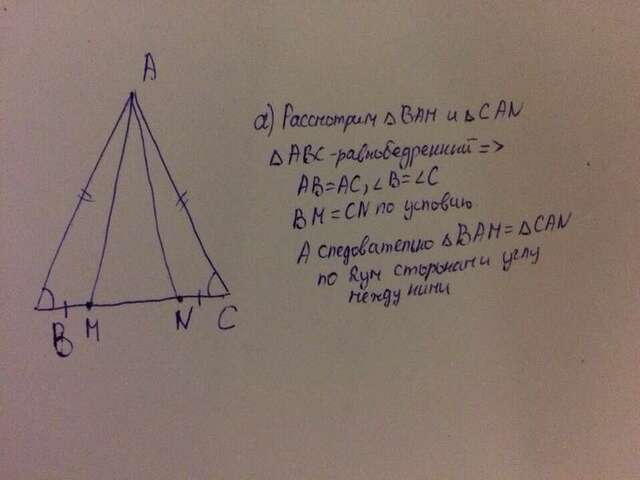 A
B
M
N
C
а) Рассмотрим △BAM и △CAN
△ABC - равнобедренный =>
AB=AC, ∠B=∠C
BM=CN по условию
А следовательно △BAM=△CAN
по 2ум сторонам и углу
между ними